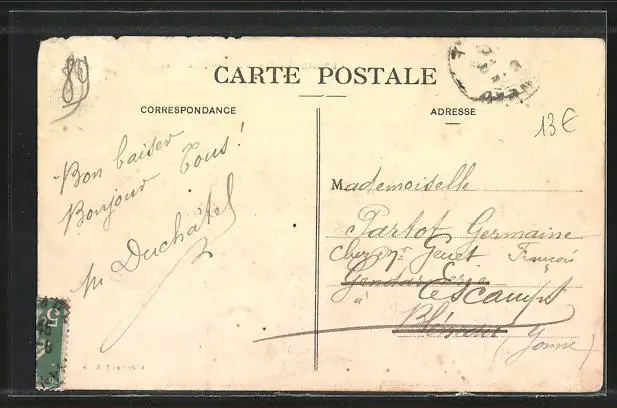 80
CARTE POSTALE
CORRESPONDANCE
ADRESSE
13€
Bon baiser
Bonjour Tous!
M Duchatel
Mademoiselle
Partot Germaine
chez Mr Genet François
Gendarmerie
à Escamps
Blémeau (Yonne)
5